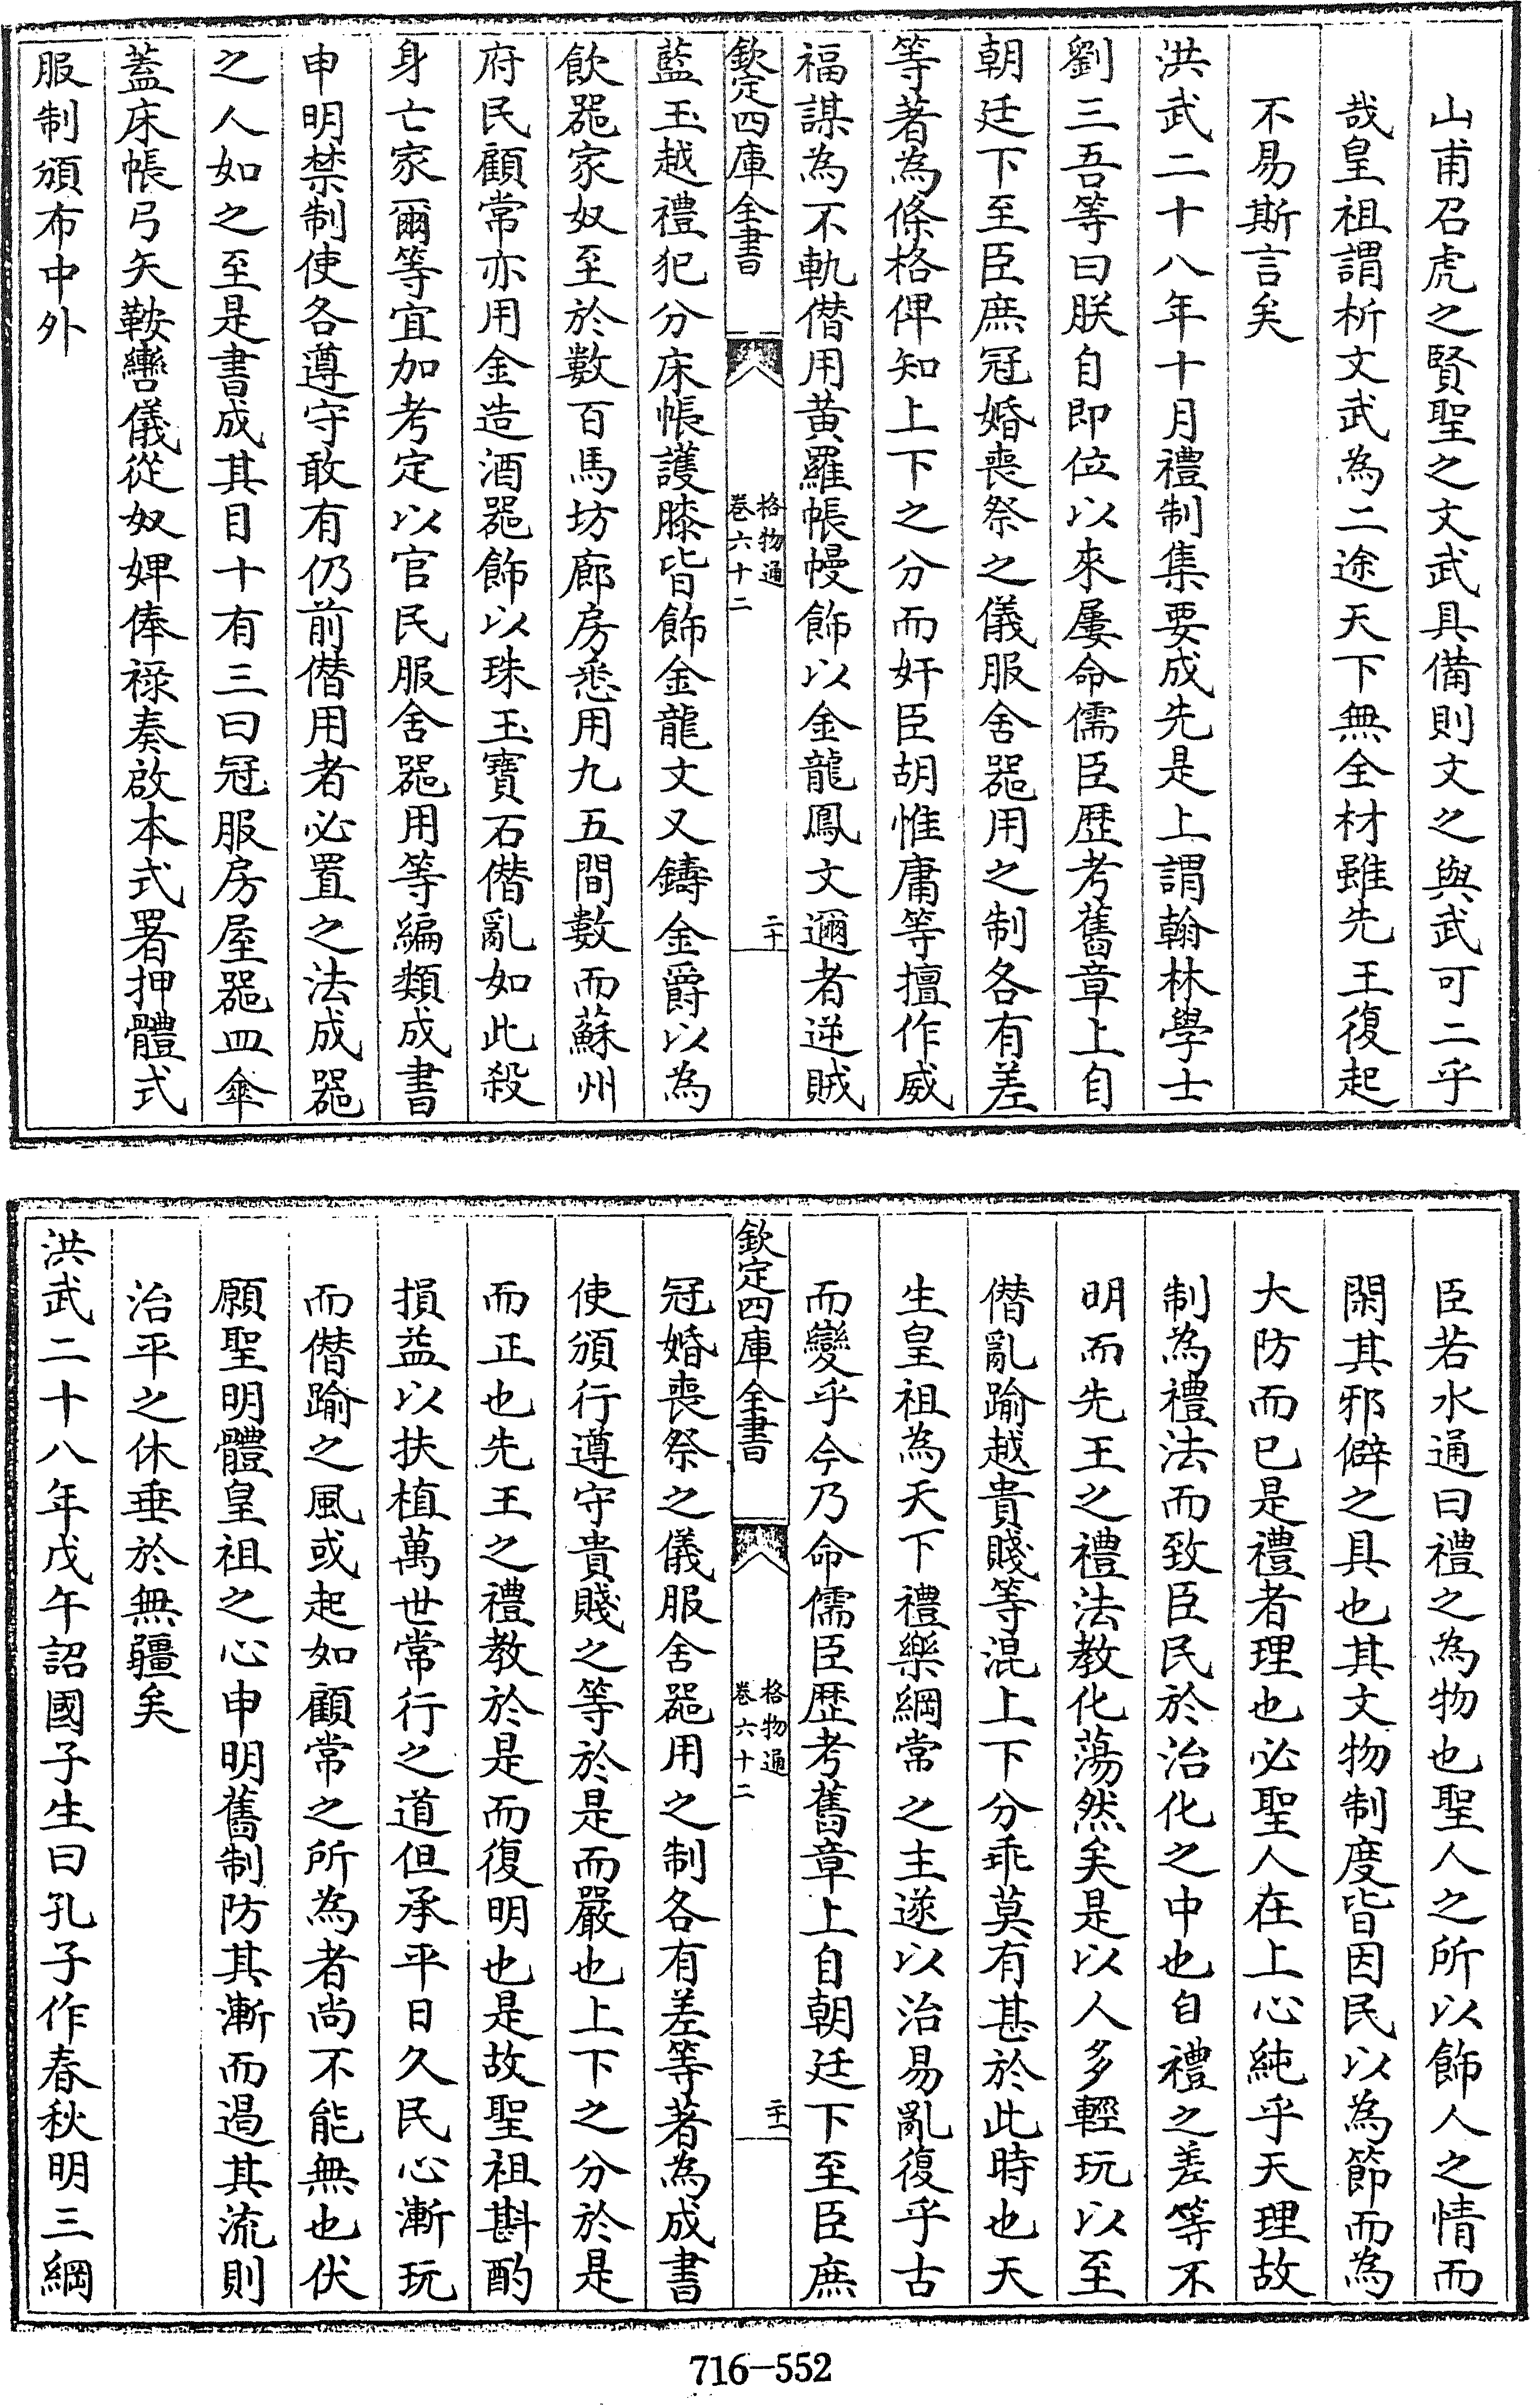 山甫召虎之賢聖之文武具備則文之與武可二乎
哉皇祖謂析文武為二途天下無全材雖先王復起
不易斯言矣
洪武二十八年十月禮制集要成先是上謂翰林學士
劉三吾等曰朕自即位以來屢命儒臣歷考舊章上自
朝廷下至臣庶冠婚喪祭之儀服舍器用之制各有差
等著為條格俾知上下之分而奸臣胡惟庸等擅作威
福謀為不軌僭用黃羅帳幔飾以金龍鳳文邇者逆賊
欽定四庫全書
格物通
卷六十二
二十
藍玉越禮犯分床帳護膝皆飾金龍文又鑄金爵以為
飲器家奴至於數百馬坊廊房悉用九五間數而蘇州
府民顧常亦用金造酒器飾以珠玉寶石僭亂如此殺
身亡家爾等宜加考定以官民服舍器用等編類成書
申明禁制使各遵守敢有仍前僭用者必置之法成器
之人如之至是書成其目十有三曰冠服房屋器皿傘
蓋床帳弓矢鞍轡儀從奴婢俸祿奏啟本式署押體式
服制頒布中外
臣若水通曰禮之為物也聖人之所以飾人之情而
閑其邪僻之具也其文物制度皆因民以為節而為
大防而已是禮者理也必聖人在上心純乎天理故
制為禮法而致臣民於治化之中也自禮之差等不
明而先王之禮法教化蕩然矣是以人多輕玩以至
僭亂踰越貴賤等混上下分乖莫有甚於此時也天
生皇祖為天下禮樂綱常之主遂以治易亂復乎古
而變乎今乃命儒臣歷考舊章上自朝廷下至臣庶
欽定四庫全書
格物通
卷六十二
二十一
冠婚喪祭之儀服舍器用之制各有差等著為成書
使頒行遵守貴賤之等於是而嚴也上下之分於是
而正也先王之禮教於是而復明也是故聖祖斟酌
損益以扶植萬世常行之道但承平日久民心漸玩
而僭踰之風或起如顧常之所為者尚不能無也伏
願聖明體皇祖之心申明舊制防其漸而遏其流則
治平之休垂於無疆矣
洪武二十八年戊午詔國子生曰孔子作春秋明三綱
716-552